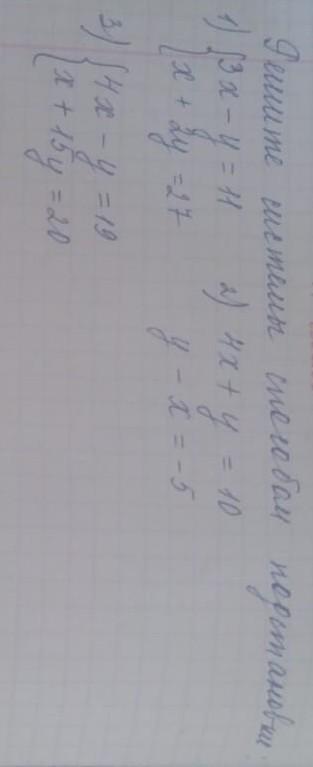 Решите системы способом подстановки.
1) { 3x - y = 11
x + 2y = 27
2) 4x + y = 10
y - x = -5
3) { 4x - y = 19
x + 15y = 20